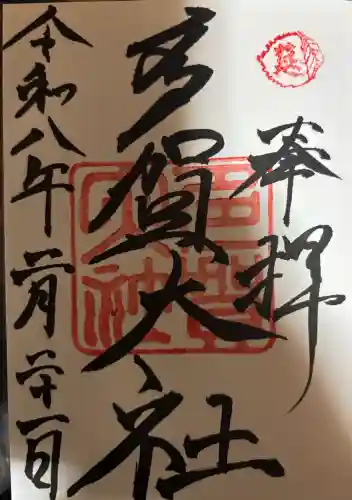 奉拝
多賀大社
令和八年二月二十一日